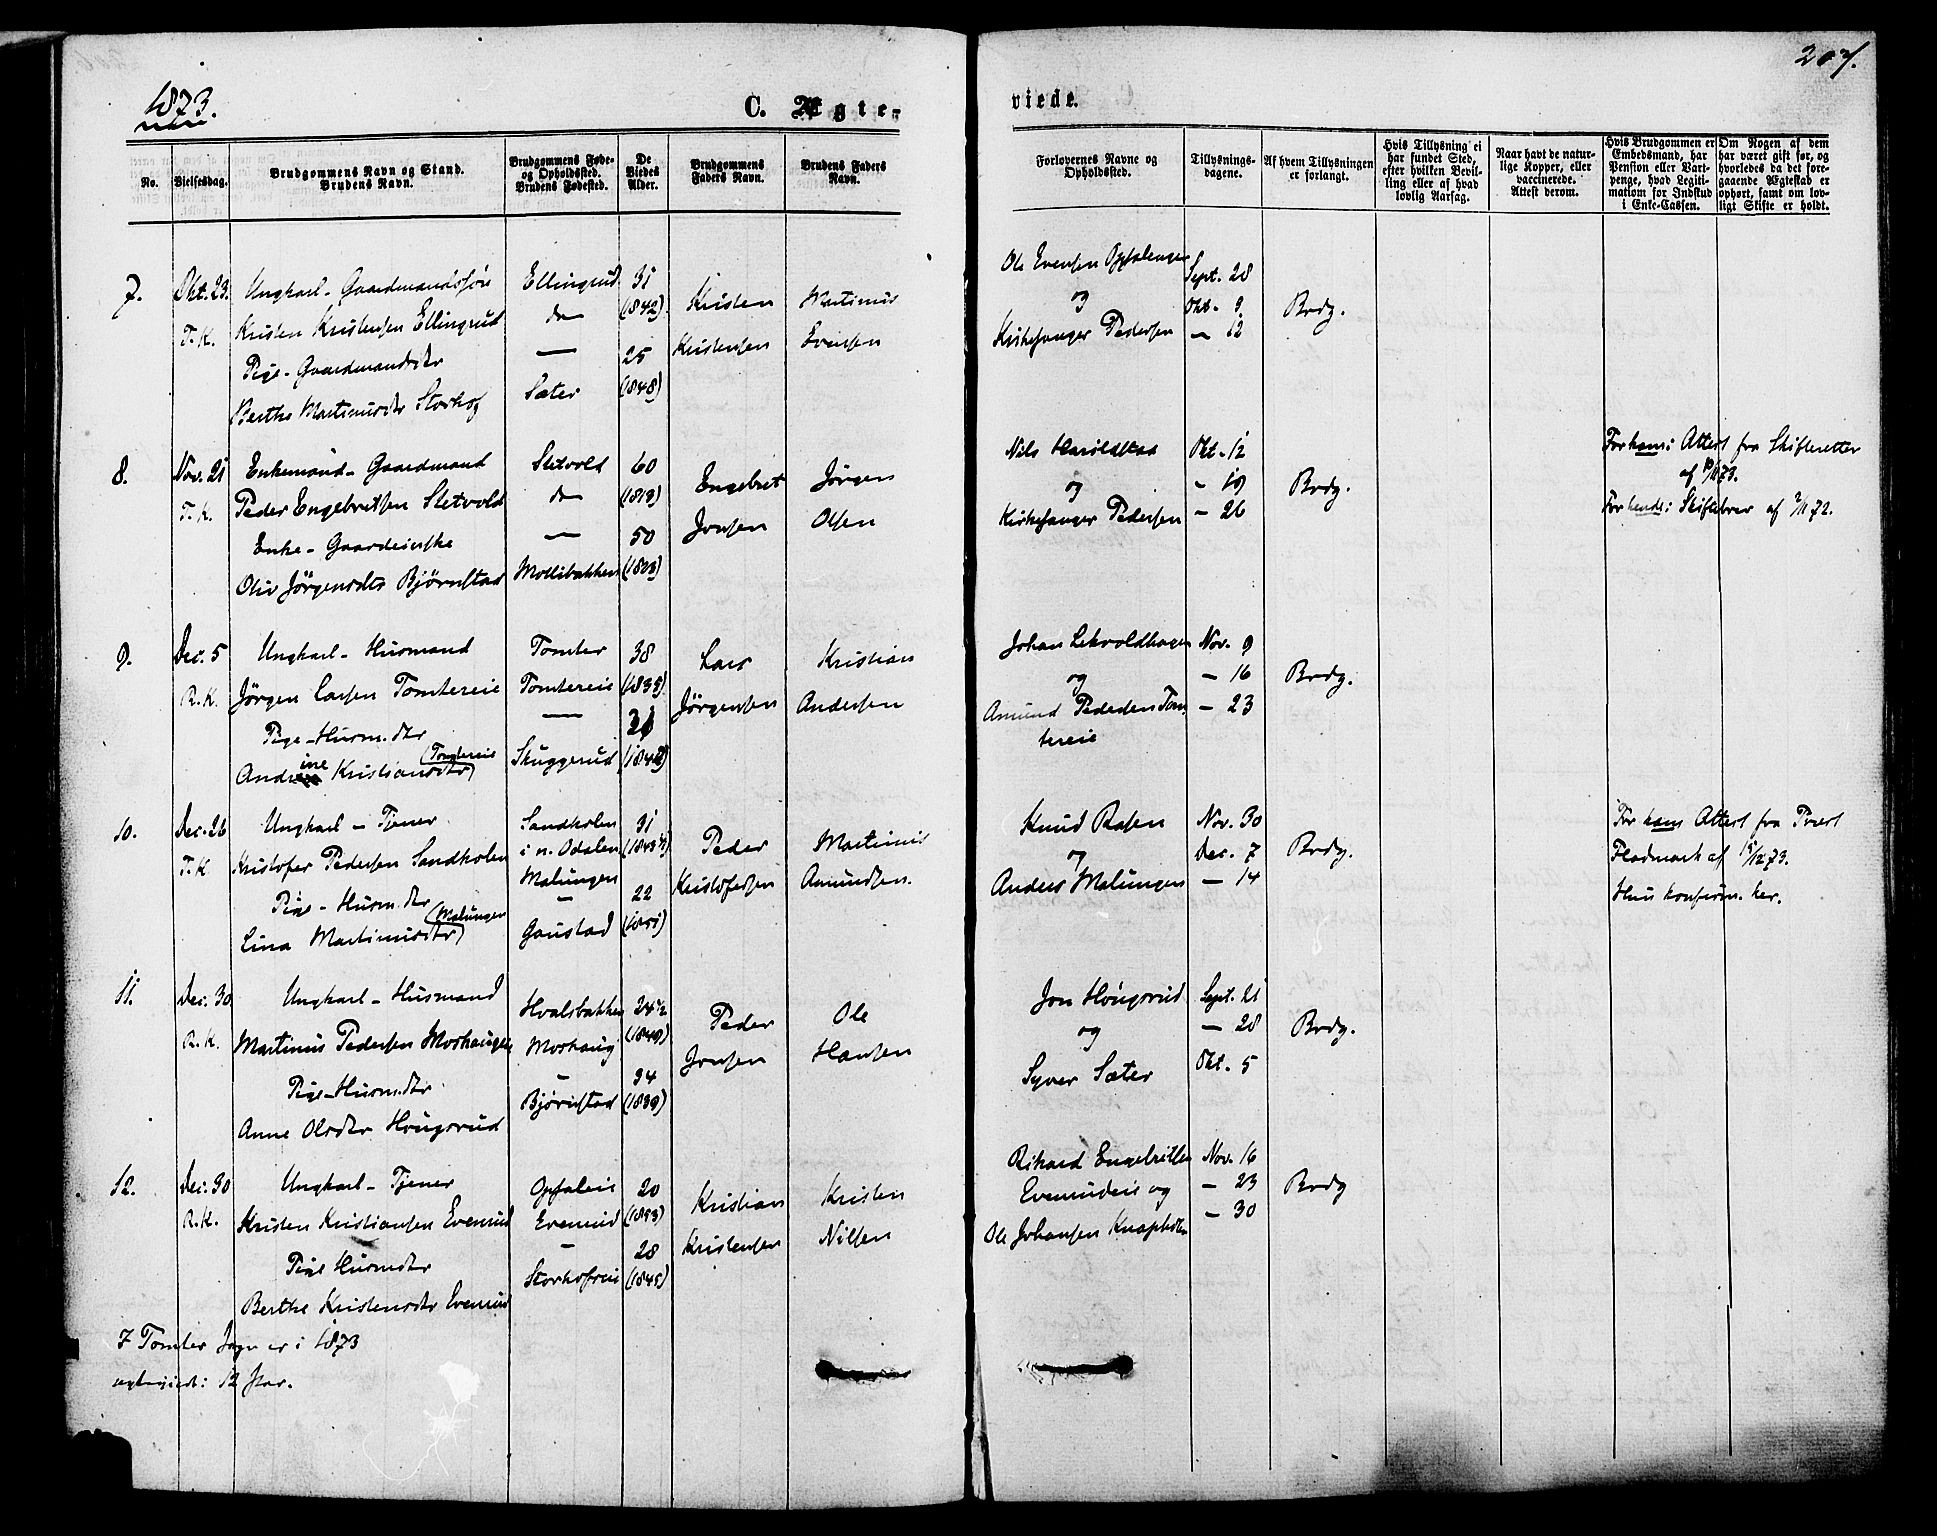 207.
1873.
C. Ægte-
viede.
No.
Vielsesdag.
Brudgommens Navn og Stand.
Brudens Navn.
Brudgommens Føde-
og Opholdssted.
Brudens Fødested.
De
Viedes
Alder.
Brudgommens
Faders Navn.
Brudens Faders
Navn.
Forlovernes Navne og
Opholdssted.
Tillysnings-
dagene.
Af hvem Tillysningen
er forlangt.
Hvis Tillysning ei
har fundet Sted,
efter hvilken Bevil-
ling eller af hvad
lovlig Aarsag.
Naar havt de natur-
lige Kopper, eller
vaccinerede.
Attest derom.
Hvis Brudgommen er
Embedsmand, har
Pension eller Vart-
penge, hvad Legiti-
mation for Indskud
i Enke-Cassen.
Om Nogen af dem
har været gift før, og
hvorledes da det fore-
gaaende Ægteskab er
ophørt, samt om lov-
ligt Skifte er holdt.
7.
Okt. 23.
T. K.
Ungkarl - Gaardmandssøn
Kristen Kristensen Ellingrud
Pige - Gaardmandsdtr
Berthe Martinusdtr Storhog
Ellingrud
do
—
Sæter
31
(1842)
25
(1848)
Kristen
Kristensen
Martinus
Evensen
Ole Evensen Opsaleneie
og
Kirkesanger Pedersen
Sept. 28
Okt. 9
— 12
Brdg.
8.
Nov. 21
T. K.
Enkemand - Gaardmand
Peder Engebretsen Sletvold
Enke - Gaardeierske
Oliv Jörgensdtr Björnstad
Sletvold
do
—
Mollibakken
60
(1813)
50
(1823)
Engebret
Jonsen
Jörgen
Olsen
Nils Haroldstad
og
Kirkesanger Pedersen
Okt. 12
— 19
— 26
Brdg.
For ham: Attest fra Skifteretten
af 10/11 73.
For hende: Skiftebrev af 2/11 72.
9.
Dec. 5
R. K.
Ungkarl - Husmand
Jörgen Larsen Tomtereie
Pige - Husm.dtr
Andrine Kristiansdtr (Tomtereie)
Tomter
Tomtereie
—
Skuggerud
38
(1835)
31
Lars
Jörgensen
Kristian
Andersen
Johan Lekvoldhagen
og
Amund Pedersen Tom
tereie
Nov. 9
— 16
— 23
Brdg.
10.
Dec. 26
T. K
Ungkarl - Tjener
Kristofer Pedersen Sandholen
Pige - Husm.dtr
Lina Martinusdtr (Malungen)
Sandholen
i n. Odalen
Malungen
—
Gaustad
31
22
(1851)
Peder
Kristofersen
Martinus
Amundsen.
Knud Rasen
og
Anders Malungen
Nov. 30
Dec. 7
— 14
Brdg.
For ham Attest fra Præst
Fladmark af 15/12 73.
Hun konfirm. her.
11.
Dec. 30
R. K.
Ungkarl - Husmand
Martinus Pedersen Morhaugen
Pige - Husm.dtr
Anne Olsdtr Hougsrud
Hvalsbakken
Morhaug
—
Björnstad
24 1/2
(1849)
34
(1839)
Peder
Jonsen
Ole
Hansen
Jon Hougsrud
og
Syver Sæter
Sept. 21
— 28
Okt. 5
Brdg.
12.
Dec. 30
R. K.
Ungkarl - Tjener
Kristen Kristiansen Evenrud
Pige Husmdtr
Berthe Kristensdtr Evenrud
Opsaleie
Evenrud
—
Storhofseie
20
(1853)
28
(1845)
Kristian
Kristensen
Kristen
Nilsen
Rikard Engebretsen
Evenrudeie og
Ole Johansen Knapholen
Nov. 16
— 23
— 30
Brdg
I Tomter Sogn er i 1873
ægteviet: 12 Par.